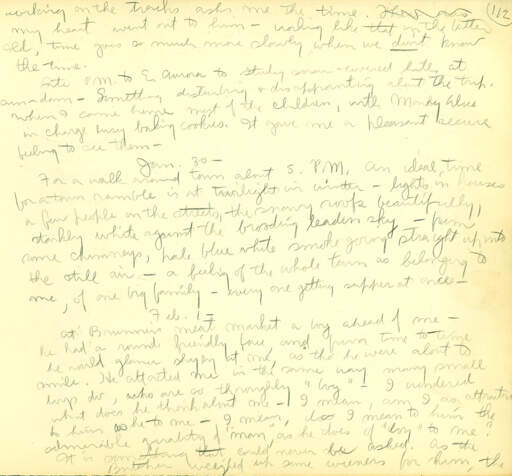 112
working on the tracks asks me the time.
my heart went out to him – working like that in the bitter
cold, time goes so much more slowly when we don't know
the time.
Late P.M. to E. Aurora to study snow-covered hills at
sundown – Something disturbing & disappointing about the trip.
When I came home most of the children, with Mary Alice
in charge busy baking cookies. It gave me a pleasant secure
feeling to see them –
Jan. 30 –
For a walk around town about 5. P.M. An ideal time
for a town ramble is at twilight in winter – lights in houses
a few people on the streets, the snowy roofs beautifully,
starkly white against the brooding leaden sky – from
some chimneys, pale blue white smoke going straight up into
the still air – a feeling of the whole town as belonging to
me, of one big family – every one getting supper at once –
Feb. 1 –
at Brunner's meat market a boy ahead of me –
he had a round friendly face and from time to time
he would glance shyly at me, as tho he were about to
smile. He attracted me in the same way many small
boys do, who are so thoroughly "boy" – I wondered
what does he think about me – I mean, am I as attractive
to him as he to me – I mean, do I mean to him the
admirable quality of "man", as he does of "boy" to me?
It is something that could never be asked. As the
Butcher weighed up some weiners for him, the